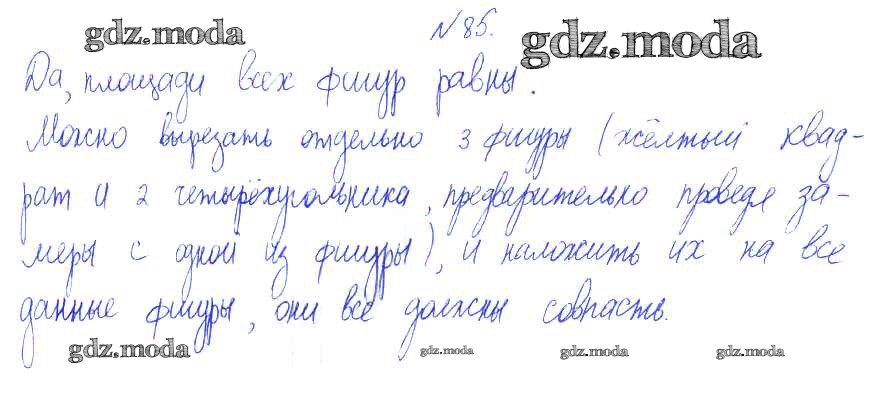 gdz.moda
№ 85.
gdz.moda
Да, площади всех фигур равны.
Можно вырезать отдельно 3 фигуры (жёлтый квад-
рат и 2 четырёхугольника, предварительно проведя за-
меры с одной из фигуры), и наложить их на все
данные фигуры, они все должны совпасть.
gdz.moda
gdz.moda
gdz.moda
gdz.moda